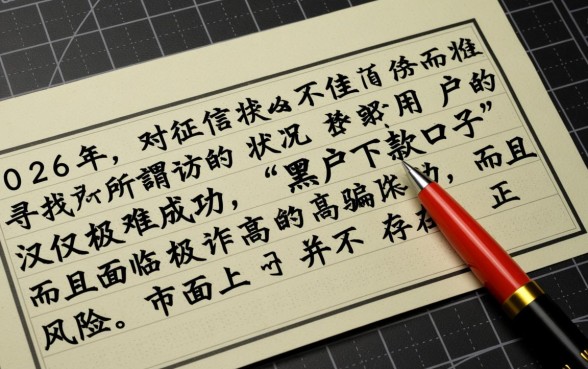 026年，对征信状 不佳 而难
寻找 所謂访的 状况 用 户的
汉仅极难成功，“黑户下款口子”
而且面临极诈高的高骗 ，而且
风险。市面上 并不 存在 正